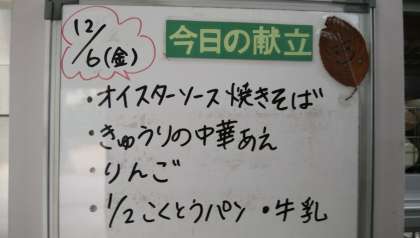 12/6(金)
今日の献立
・オイスターソース焼きそば
・きゅうりの中華あえ
・りんご
・1/2こくとうパン・牛乳